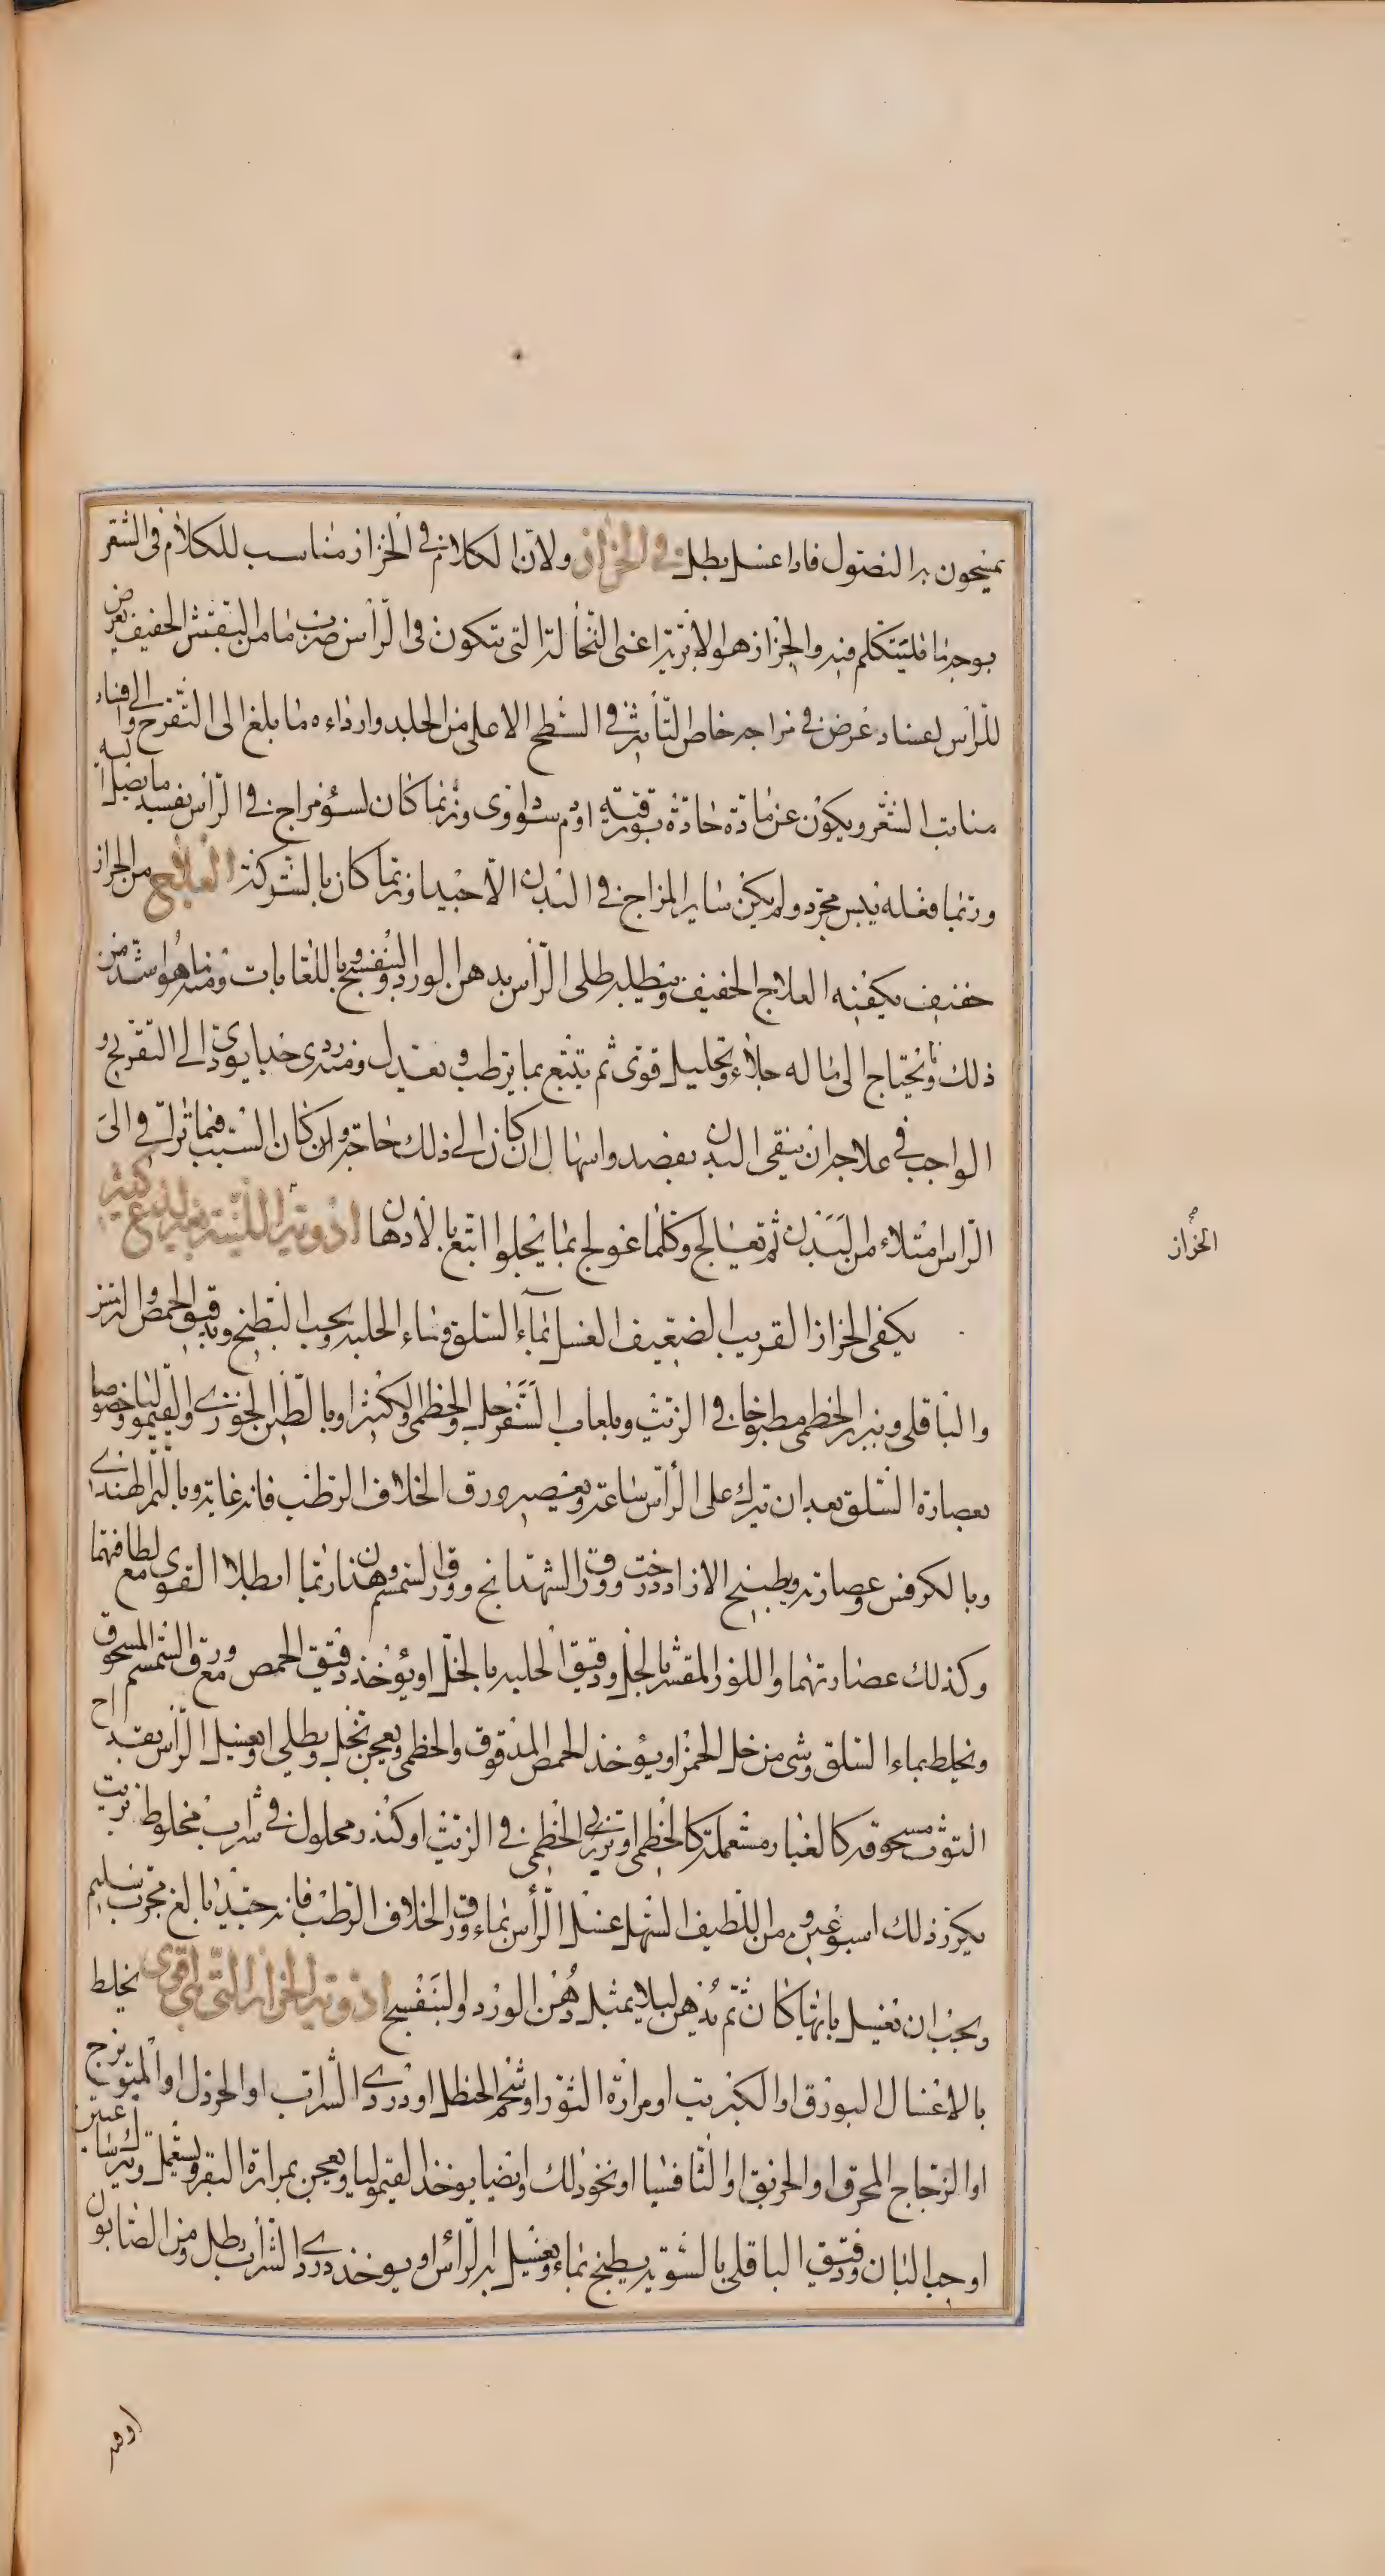 يمنحون به النصول فاذا غسل بطل في الحزاز ولان الكلام في الحزاز مناسب للكلام في الشعر
بوجه ما فليتكلم فيه والحزاز هو الابرية اعنى النخالة التى تتكون فى الرأس ضرب ما من التقشر الخفيف يعرض
للرأس لفساد عرض في مزاجه خاص التأثير في السطح الاعلى من الجلد وارداءه ما بلغ الى التقرح والى افساد
منابت الشعر ويكون عن مادة حادة بورقية او دم سوداوى وربما كان لسوء مزاج في الرأس يفسد ما يصل اليه
وربما فعله يبس مجرد ولم يكن ساير المزاج في البدن الا جيدا وربما كان بالشركة العلاج من الحزاز
خفيف يكفيه العلاج الخفيف وتطليه طلى الرأس بدهن الورد والبنفسج وباللعابات ومنه ما هو اشد من
ذلك ويحتاج الى ما له جلاء وتحليل قوى ثم يتبع بما يرطب ويعدل ومنه ردى خبيث يودى الى التقريح و
الواجب في علاجه ان ينقى البدن بفصد واسهال ان كان الى ذلك حاجة وان كان السبب فيما تراقى الى
الراس امتلاء من البدن ثم تعالج وكلما عولج بما يجلوا اتبع بالادهان ادوية اللينة بغير لذع كثير
يكفى الحزاز القريب الضعيف الغسل بماء السلق وماء الحلبة وبحب البطيخ وبدقيق الحمص والترمس
والباقلى وببزر الخطمى مطبوخا في الزيت وبلعاب السفرجل والخطمى والكثيرا وبالطين الخوزى والقيموليا خصوصا
بعصارة السلق بعد ان يترك على الرأس ساعة وبعصير ورق الخلاف الرطب فانه غاية وبالتمر الهندى
وبالكرفس وعصارته وبطبيخ الازاددرخت وورق الشهدانج وورق السمسم وهذان ربما ابطلا القوى مع لطافتهما
وكذلك عصارتهما واللوز المقشر بالخل ودقيق الحلبة بالخل او يؤخذ دقيق الحمص مع ورق السمسم المسحوق
ويخلط بماء السلق وشى من خل الخمر او يؤخذ الحمص المدقوق والخطمى ويعجن بخل ويطلى او يغسل الرأس بقداح
التوث مسحوقه كالغبار مستعملة كالخطمى او بزر الخطمى في الزيت او كندر محلول في شراب مخلوط بزيت
يكرر ذلك اسبوعين ومن اللطيف السهل غسل الرأس بماء ورق الخلاف الرطب فانه جيد بالغ مجرب سليم
ويجب ان يغسل بايها كان ثم يدهن ليلا بمثل دهن الورد والبنفسج ادوية الحزاز التى هى اقوى يخلط
بالاغسال البورق او الكبريت او مرارة الثور او شحم الحنظل او دردى الشراب او الخردل او الميويزج
او الزجاج المحرق او الخربق او الثافسيا او نحو ذلك وايضا يوخذ القيموليا ويعجن بمرارة البقر ويستعمل ويترك ساعتين
او حب البان ودقيق الباقلى بالسوية يطبخ بماء ويغسل به الرأس او يوخذ دردى الشراب رطل ومن الصابون
الحزاز
اوقيه